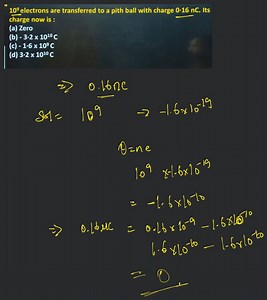 10⁹ electrons are transferred to a pith ball with charge 0·16 nC. Its
charge now is :
(a) Zero
(b) - 3·2 x 10¹⁰ C
(c) - 1·6 x 10⁹ C
(d) 3·2 x 10¹⁰ C
⇒ 0.16nC
Sol = 10⁹ → -1.6x10⁻¹⁹
Q=ne
10⁹ x-1.6x10⁻¹⁹
= -1.6x10⁻¹⁰
⇒ 0.16nC = 0.16x10⁻⁹ - 1.6x10⁻¹⁰
1.6x10⁻¹⁰ - 1.6x10⁻¹⁰
= 0